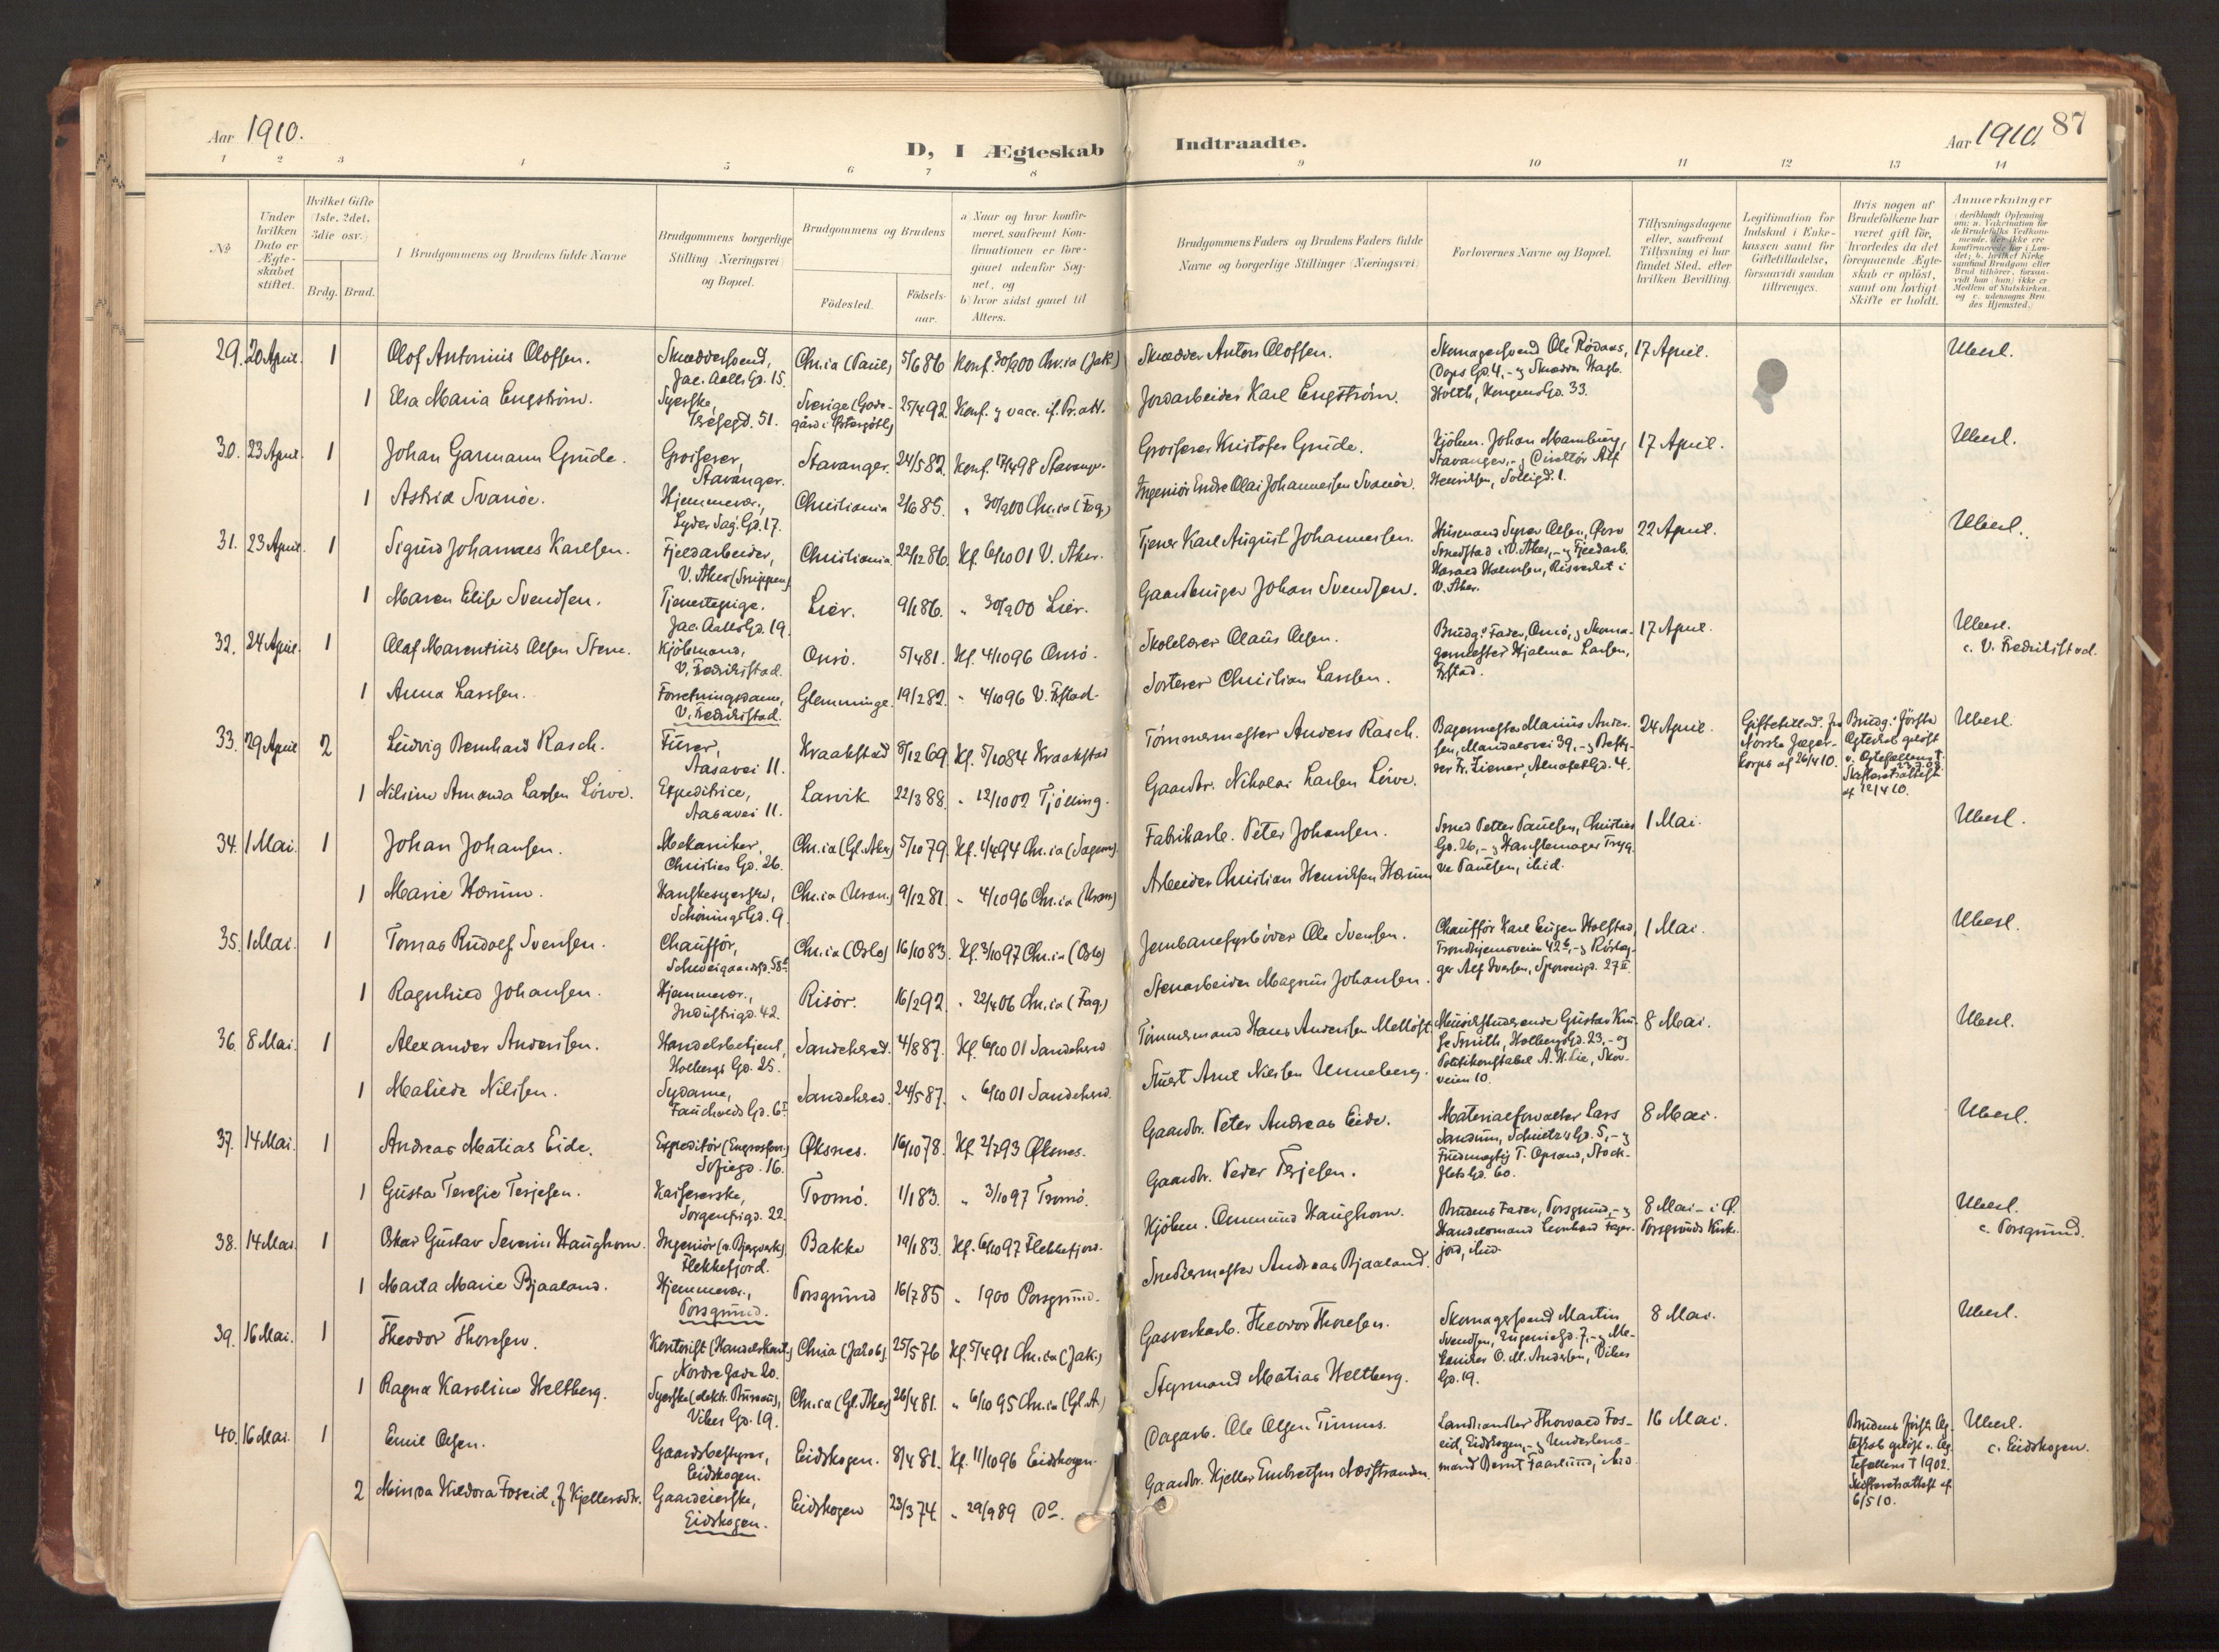 Aar 1910.
D, I Ægteskab
Indtraadte.
Aar 1910.
87
1 2 3 4 5 6 7 8 9 10 11 12 13 14
No
Under hvilken Dato er Ægteskabet stiftet.
Hvilket Gifte (1ste, 2det, 3die osv.)
Brdg. Brud.
I Brudgommens og Brudens fulde Navne
Brudgommens borgerlige Stilling (Næringsvei) og Bopæl.
Brudgommens og Brudens
Födested.
Födselsaar.
a Naar og hvor konfirmeret, saafremt Konfirmationen er foregaaet udenfor Sognet, og
b) hvor sidst gaaet til Alters.
Brudgommens Faders og Brudens Faders fulde Navne og borgerlige Stillinger (Næringsvei)
Forlovernes Navne og Bopæl.
Tillysningsdagene eller, saafremt Tillysning ei har fundet Sted, efter hvilken Bevilling.
Legitimation for Indskud i Enkekassen samt for Giftetilladelse, forsaavidt saadan tiltrænges.
Hvis nogen af Brudefolkene har været gift för, hvorledes da det foregaaende Ægteskab er oplöst, samt om lovligt Skifte er holdt.
Anmærkninger
29. 20 April. 1 Olof Antonius Oloffen. Skræddersvend, Jac. Aalls Gd. 15. Chr.ia (Paul) 5/6 86 Konf. 30/9 00 Chr.ia (Jak.) Skrædder Anton Oloffen. Skomagersvend Ole Rödaas, Dops Gd. 4, - og Skrædder Hagb. Holth, Kongens Gd. 33. 17 April. Ubesl.
1 Elsa Maria Engström. Syerske, Tresegd. 51. Sverige (Godegård i Östergötl.) 25/4 92. Konf. og vacc. if. Pr.att. Jordarbeider Karl Engström.
30. 23 April. 1 Johan Garmann Grude. Grosserer, Stavanger. Stavanger. 24/5 82. Konf. 17/4 98 Stavangr. Grosserer Kristofer Grude. Kjöbm. Johan Mamburg, Stavanger, - og Direktör Alf Henriksen, Solligd. 1. 17 April. Ubesl.
1 Astrid Svanöe. Hjemmevær., Lyder Sag. Gd. 17. Christiania 2/6 85. " 30/9 00 Chr.ia (Fag.) Ingeniör Endre Olai Johannessen Svanöe.
31. 23 April. 1 Sigurd Johannes Karlsen. Fjeldarbeider, V. Aker (Smippen) Christiania. 22/12 86. Kf. 6/10 01 V. Aker. Tjener Karl August Johannessen. Husmand Syver Olsen, Persv Smedstad i V. Aker, - og Fjeldarb. Harald Halvorsen, Risverket i V. Aker. 22 April. Ubesl.
1 Maren Elise Svendsen. Tjenestepige. Jac. Aalls Gd. 19. Lier. 9/1 86. " 30/9 00 Lier. Gaardbruger Johan Svendsen.
32. 24 April. 1 Olaf Marentius Olsen Stene. Kjöbmand, V. Fredrikstad. Onsö. 5/4 81. Kf. 4/10 96 Onsö. Skolelærer Olaus Olsen. Brudg.s Fader, Onsö, og Skomagermester Hjalmar Larsen, Fr.stad. 17 April. Ubesl. c. V. Fredrikstad.
1 Anna Larssen. Forretningsdame, V. Fredrikstad. Glemminge. 19/2 82. " 4/10 96 V. Fr.stad. Sorterer Christian Larssen.
33. 29 April 2 Ludvig Bernhard Rasch. Furer, Aasavei 11. Kraakstad 8/12 69. Kf. 5/10 84 Kraakstad Tömmermester Anders Rasch. Bagermester Marius Andersen, Mandalsvei 39, - og Bestyrer Fr. Ziener, Almas Gd. 4. 24 April. Giftetillad. fra Norske Jægerkorps af 26/4 10. Brudg.s förste Ægteskab oplöst v. Ægtefællens † Skifteretsattest af 12/4 10. Ubesl.
1 Nilsine Amanda Larsen Löwe. Expeditrice, Aasavei 11. Larvik 22/3 88. " 12/10 02 Tjölling. Gaardbr. Nikolai Larsen Löwe.
34. 1 Mai. 1 Johan Johansen. Mekaniker, Christies Gd. 26. Chr.ia (Gl. Aker) 5/10 79. Kf. 1/4 94 Chr.ia (Sagene). Fabrikarb. Peter Johansen. Smed Petter Paulsen, Christies Gd. 26, - og Hanskemager Trygve Paulsen, ibid. 1 Mai. Ubesl.
1 Marie Hærum. Hanskesyerske, Schönings Gd. 9. Chr.ia (Uran.) 9/12 81. " 4/10 96 Chr.ia (Uran.) Arbeider Christian Henriksen Hærum
35. 1 Mai. 1 Tomas Rudolf Svensen. Chaufför, Schweigaardsgd. 58 Chr.ia (Oslo) 16/10 83. Kf. 3/10 97 Chr.ia (Oslo) Jernbanefyrböder Ole Svensen. Chaufför Karl Eugen Holstad, Trondhjemsveien 42, - og Rörlægger Alf Iversen, Sporveisgd. 27 II. 1 Mai. Ubesl.
1 Ragnhild Johansen. Hjemmevær., Industrigd. 42. Risör. 16/2 92. " 22/4 06 Chr.ia (Fag.) Stenarbeider Magnus Johansen.
36. 8 Mai. 1 Alexander Anderssen. Handelsbetjent, Holbergs Gd. 25. Sandeherred. 4/8 87. Kf. 6/10 01 Sandeherred Tömmermand Hans Anderssen Melløst. Musikstuderende Gustav Smith, Holbergs Gd. 23, - og Politikonstabel A. H. Lie, Skovveien 10. 8 Mai. Ubesl.
1 Matilde Nilssen. Sydame, Fauchalds Gd. 6 Sandeherred. 24/5 87. " 6/10 01 Sandeherred. Stuert Arnt Nielsen Unneberg.
37. 14 Mai. 1 Andreas Matias Eide. Expeditör (Engrosforr.) Sofiegd. 16. Øksnes. 16/10 78. Kf. 2/7 93 Øksnes. Gaardbr. Peter Andreas Eide. Materialforvalter Lars Sandum, Schultz's Gd. 5, - og Fuldmægtig T. Opsand, Stockflets Gd. 60. 8 Mai. Ubesl.
1 Gusta Teresie Terjesen. Kassererske, Sorgenfrigd. 22. Tromö. 1/1 83. " 3/10 97 Tromö. Gaardbr. Peder Terjesen.
38. 14 Mai. 1 Oskar Gustav Severin Haughom. Ingeniör (v. Bjergverk) Flekkefjord. Bakke 19/1 83. Kf. 6/10 97 Flekkefjord. Kjöbm. Ommund Haughom. Brudens Fader, Porsgrund, - og Handelsmand Leonhard Fagerjord, ibid. 8 Mai - i Ø. Porsgrunds Kirke. Ubesl. c. Porsgrund.
1 Marta Marie Bjaaland. Hjemmevær., Porsgrund. Porsgrund 16/7 85 " 1900 Porsgrund. Snedkermester Andreas Bjaaland.
39. 16 Mai. 1 Theodor Thoresen. Kontorist (Handelskont.) Nordre Gade 20. Chr.ia (Jakob). 25/5 76 Kf. 5/4 91 Chr.ia (Jak.) Gasverkarb. Theodor Thoresen. Skomagersvend Martin Svendsen, Eugenies Gd. 7, - og Mekaniker O. M. Andersen, Vibes Gd. 19. 8 Mai. Ubesl.
1 Ragna Karoline Heltberg. Syerske (elektr. Bureau), Vibes Gd. 19. Chr.ia (Gl. Aker) 26/4 81. " 6/10 95 Chr.ia (Gl. A.) Styrmand Matias Heltberg.
40. 16 Mai. 1 Emil Olsen. Gaardsbestyrer, Eidskogen. Eidskogen. 8/4 81. Kf. 11/10 96 Eidskogen. Dagarb. Ole Olsen Timmes. Landhandler Thorvald Foseid, Eidskogen, - og Underlensmand Bernt Faarlund, ibid. 16 Mai. Brudens förste Ægteskab oplöst v. Ægtefællens † 1902. Skifteretsattest af 6/5 10. Ubesl. c. Eidskogen.
2 Minda Hildora Foseid, f. Kjellersdtr. Gaardeierske, Eidskogen. Eidskogen 23/3 74 " 29/9 89 Do. Gaardbr. Kjeller Embretsen Næsstranden.